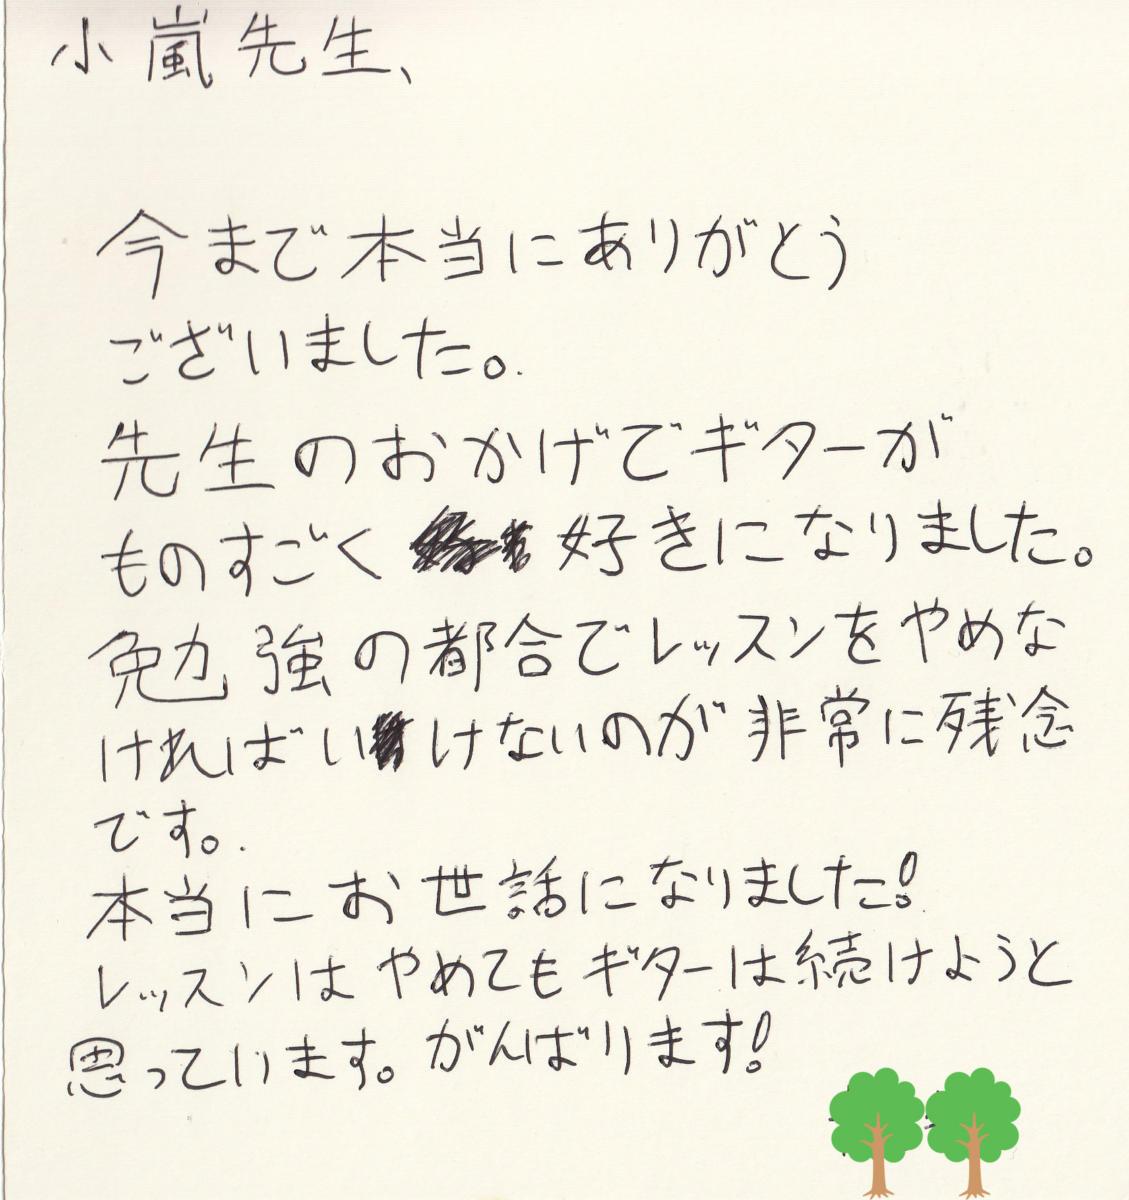 小嵐先生、
今まで本当にありがとう
ございました。
先生のおかげでギターが
ものすごく 好きになりました。
勉強の都合でレッスンをやめな
ければいけないのが非常に残念
です。
本当にお世話になりました!
レッスンはやめてもギターは続けようと
思っています。がんばります!